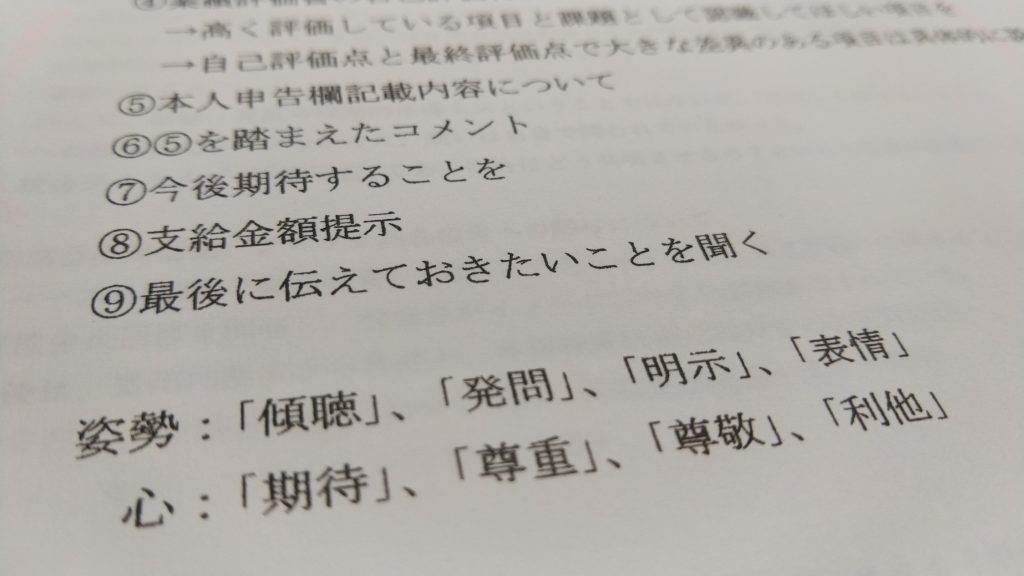 →高く評価している項目と課題として認識してほしい項目を
→自己評価点と最終評価点で大きな差異のある項目は具体的に
⑤本人申告欄記載内容について
⑥⑤を踏まえたコメント
⑦今後期待することを
⑧支給金額提示
⑨最後に伝えておきたいことを聞く
姿勢：「傾聴」、「発問」、「明示」、「表情」
心：「期待」、「尊重」、「尊敬」、「利他」